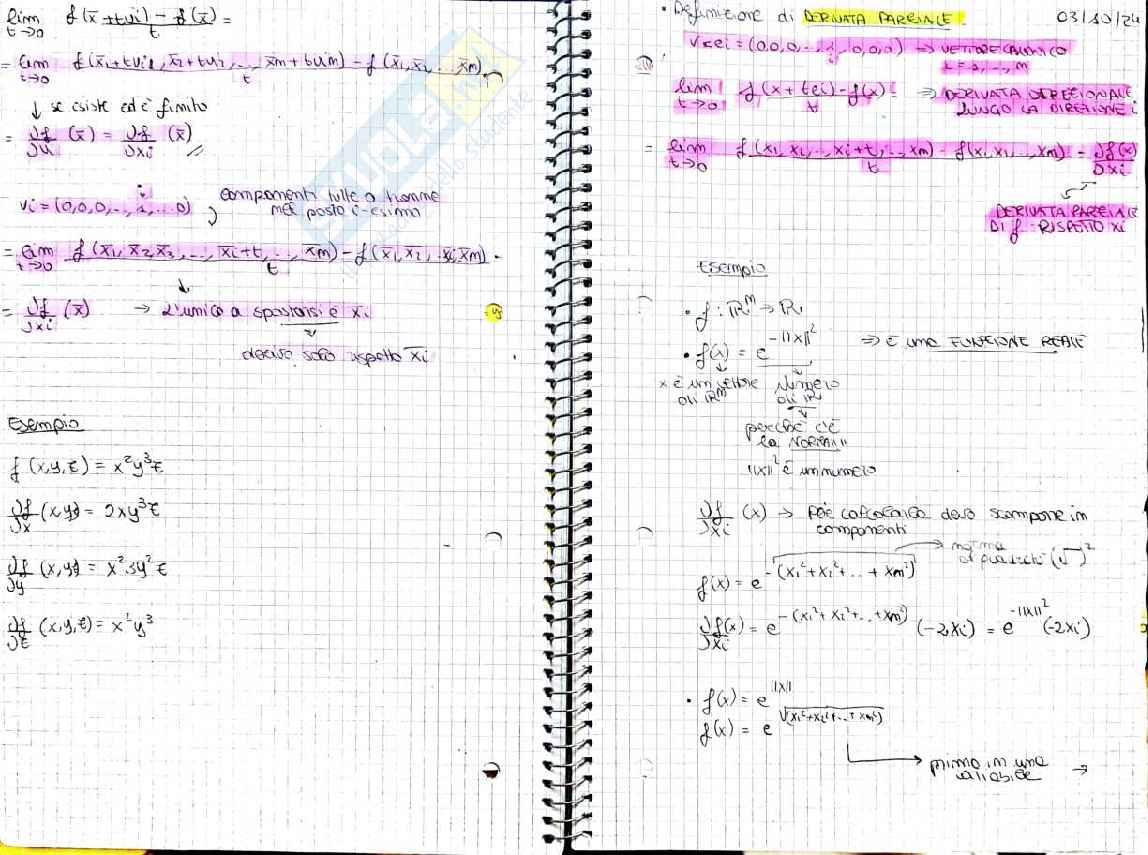 lim f(x̄+tvi) - f(x̄) =
t→0 t
= lim f(x̄1+tvi1, x̄2+tvi2, ..., x̄m+tvim) - f(x̄1, x̄2, ... x̄m)
t→0 t
↓ se esiste ed è finito
= ∂f (x̄) = ∂f (x̄)
∂u ∂xi
vi = (0,0,0,..,1,...0) componenti tutte 0 tranne
nel posto i-esimo
= lim f(x̄1, x̄2, x̄3, ..., x̄i+t, .., x̄m) - f(x̄1, x̄2, .. x̄i, x̄m)
t→0 t
= ∂f (x̄) → L'unico a spostarsi è xi
∂xi
derivo solo rispetto x̄i
Esempio
f(x,y,z) = x²y³z
∂f (x,y,z) = 2xy³z
∂x
∂f (x,y,z) = x²3y²z
∂y
∂f (x,y,z) = x²y³
∂z
• Definizione di DERIVATA PARZIALE 03/10/24
V=ei = (0,0,0,..1,..,0,0,0) → VETTORE CANONICO
i = 1,..,m
lim f(x+tei) - f(x) = ⇒ DERIVATA DIREZIONALE
t→0 t LUNGO LA DIREZIONE i
= lim f(x1, x2, .., xi+t, .., xm) - f(x1, x2, .., xm) = ∂f(x)
t→0 t ∂xi
DERIVATA PARZIALE
DI f RISPETTO xi
Esempio
• f: ℝᵐ → ℝ
• f(x) = e^-||x||² ⇒ È UNA FUNZIONE REALE
x è un vettore Numero
di ℝᵐ di ℝ
perché c'è
la NORMA ||
||x||² è un numero
∂f (x) → per calcolarla devo scomporre in
∂xi componenti
norma
al quadrato (√)²
f(x) = e^-(x1²+x2²+..+xm²)
∂f(x) = e^-(x1²+x2²+..+xm²) (-2xi) = e^-||x||² (-2xi)
∂xi
• f(x) = e^||x||
f(x) = e^√(x1²+x2²+..+xm²)
primo in una
variabile →